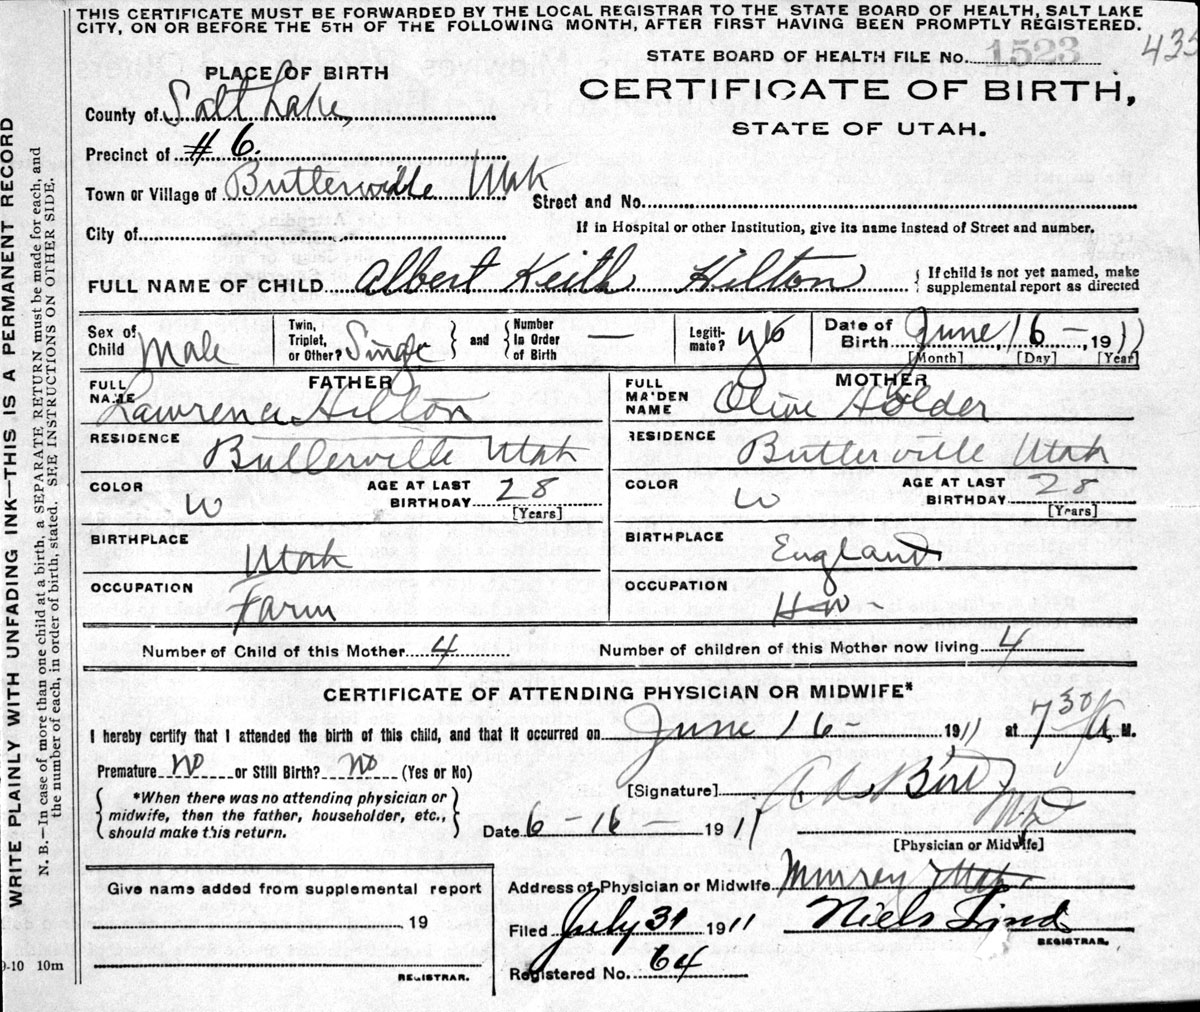 THIS CERTIFICATE MUST BE FORWARDED BY THE LOCAL REGISTRAR TO THE STATE BOARD OF HEALTH, SALT LAKE
CITY, ON OR BEFORE THE 5TH OF THE FOLLOWING MONTH, AFTER FIRST HAVING BEEN PROMPTLY REGISTERED.
STATE BOARD OF HEALTH FILE No. 1523
435
PLACE OF BIRTH
CERTIFICATE OF BIRTH,
STATE OF UTAH.
County of Salt Lake,
Precinct of #6.
Town or Village of Butlerville Utah
Street and No.
City of
If in Hospital or other Institution, give its name instead of Street and number.
FULL NAME OF CHILD Albert Keith Hilton { If child is not yet named, make
supplemental report as directed
Sex of Child Male
Twin, Triplet, or Other? Single } and { Number In Order of Birth —
Legiti-mate? yes
Date of Birth June, 16 –, 1911
[Month] [Day] [Year]
FATHER
FULL NAME Lawrence Hilton
MOTHER
FULL MAIDEN NAME Olive Holder
RESIDENCE Butlerville Utah
RESIDENCE Butlerville Utah
COLOR W AGE AT LAST BIRTHDAY 28 [Years]
COLOR W AGE AT LAST BIRTHDAY 28 [Years]
BIRTHPLACE Utah
BIRTHPLACE England
OCCUPATION Farm
OCCUPATION H-W-
Number of Child of this Mother 4 Number of children of this Mother now living 4
CERTIFICATE OF ATTENDING PHYSICIAN OR MIDWIFE*
I hereby certify that I attended the birth of this child, and that it occurred on June 16 – 1911 at 7 30/A. M.
Premature no or Still Birth? no (Yes or No)
[Signature]
MD
{ *When there was no attending physician or
midwife, then the father, householder, etc.,
should make this return. }
Date 6 – 16 – 1911
[Physician or Midwife]
Give name added from supplemental report
19
REGISTRAR.
Address of Physician or Midwife Murray Utah
Filed July 31 1911 Niels Lind
REGISTRAR.
Registered No. 64
9-10 10m
WRITE PLAINLY WITH UNFADING INK—THIS IS A PERMANENT RECORD
N. B.—In case of more than one child at a birth, a SEPARATE RETURN must be made for each, and
the number of each, in order of birth, stated. SEE INSTRUCTIONS ON OTHER SIDE.